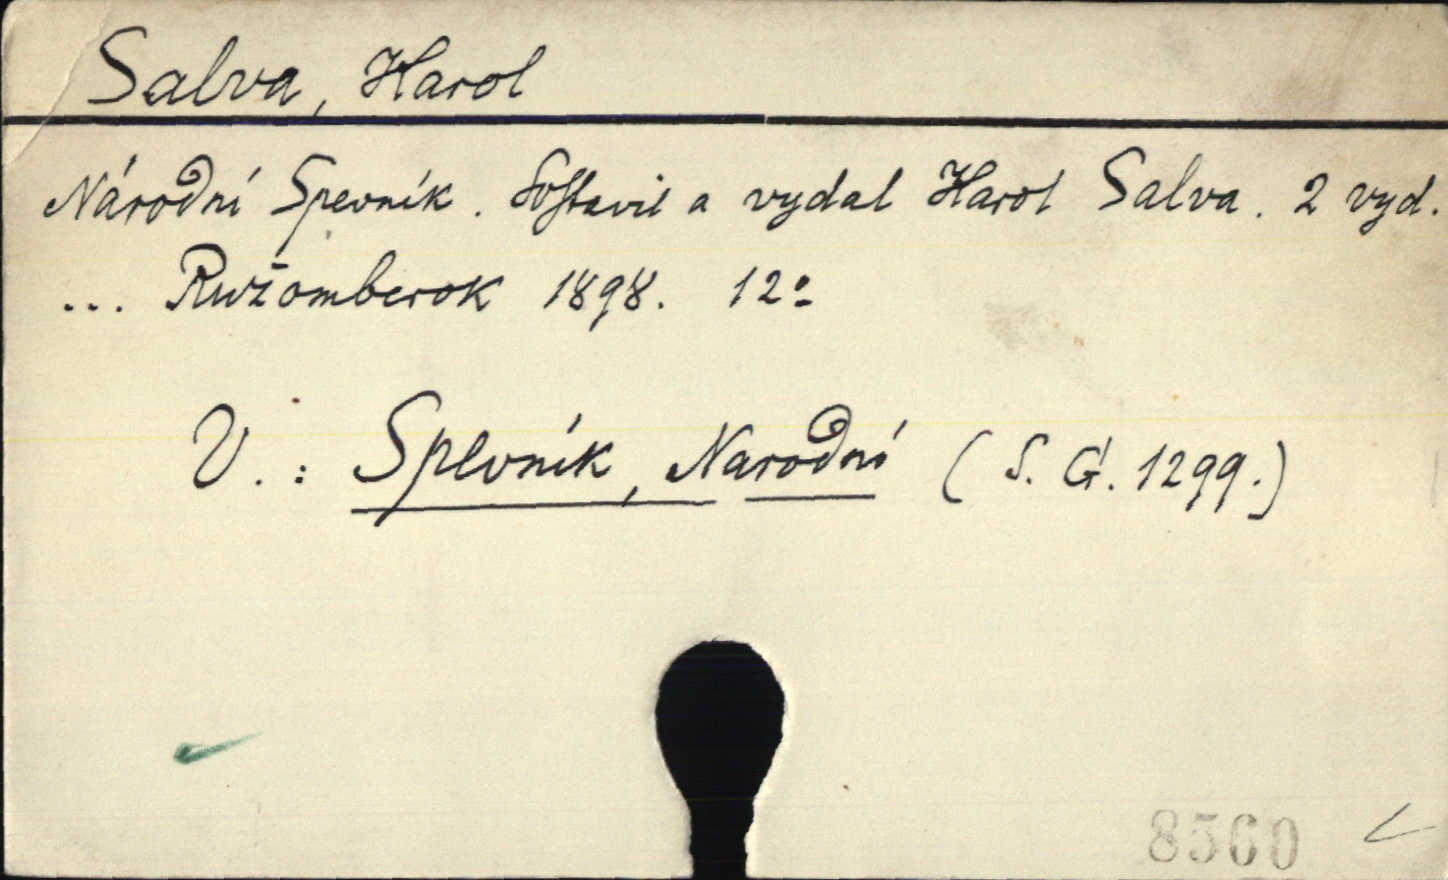 Salva, Karol
Národní Spevník. Sostavil a vydal Karol Salva. 2 vyd.
... Ružomberok 1898. 12º
V.: Spevník, Narodní (S. G. 1299.)
8560